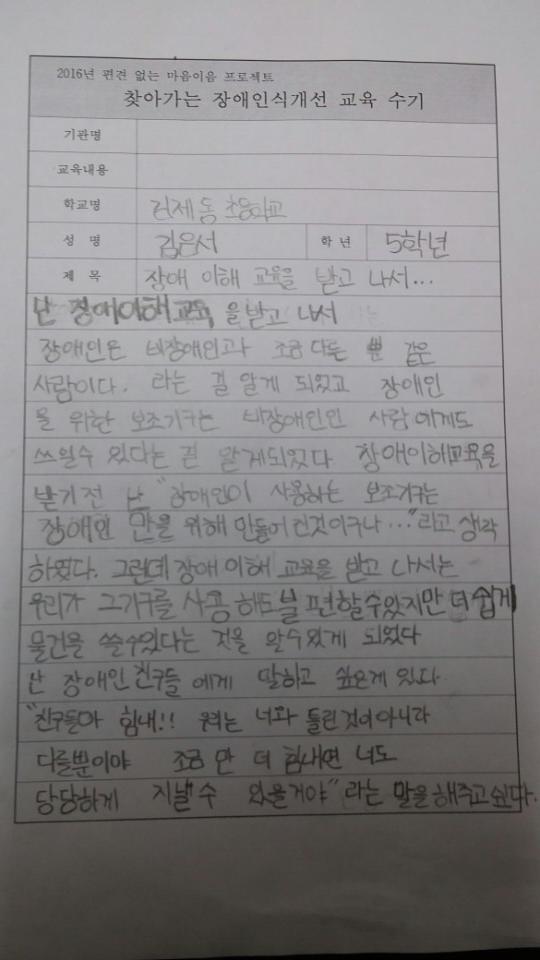 2016년 편견 없는 마음이음 프로젝트
찾아가는 장애인식개선 교육 수기
기관명
교육내용
학교명 거제동 초등학교
성 명 김은서 학 년 5학년
제 목 장애 이해 교육을 받고 나서...
난 장애이해교육을받고 나서
장애인은 비장애인과 조금 다를 뿐 같은
사람이다. 라는 걸 알게 되었고 장애인
을 위한 보조기구는 비장애인인 사람에게도
쓰일수 있다는 걸 알게되었다 장애이해교육을
받기전 난 "장애인이 사용하는 보조기구는
장애인 만을 위해 만들어진것이구나..."라고 생각
하였다. 그런데 장애 이해 교육을 받고 나서는
우리가 그기구를 사용해도 불편할수있지만 더 쉽게
물건을 쓸수있다는 것을 알수있게 되었다
난 장애인 친구들 에게 말하고 싶은게 있다
"친구들아 힘내!! 우리는 너와 틀린것이아니라
다를뿐이야 조금 만 더 힘내면 너도
당당하게 지낼수 있을거야"라는 말을해주고싶다.